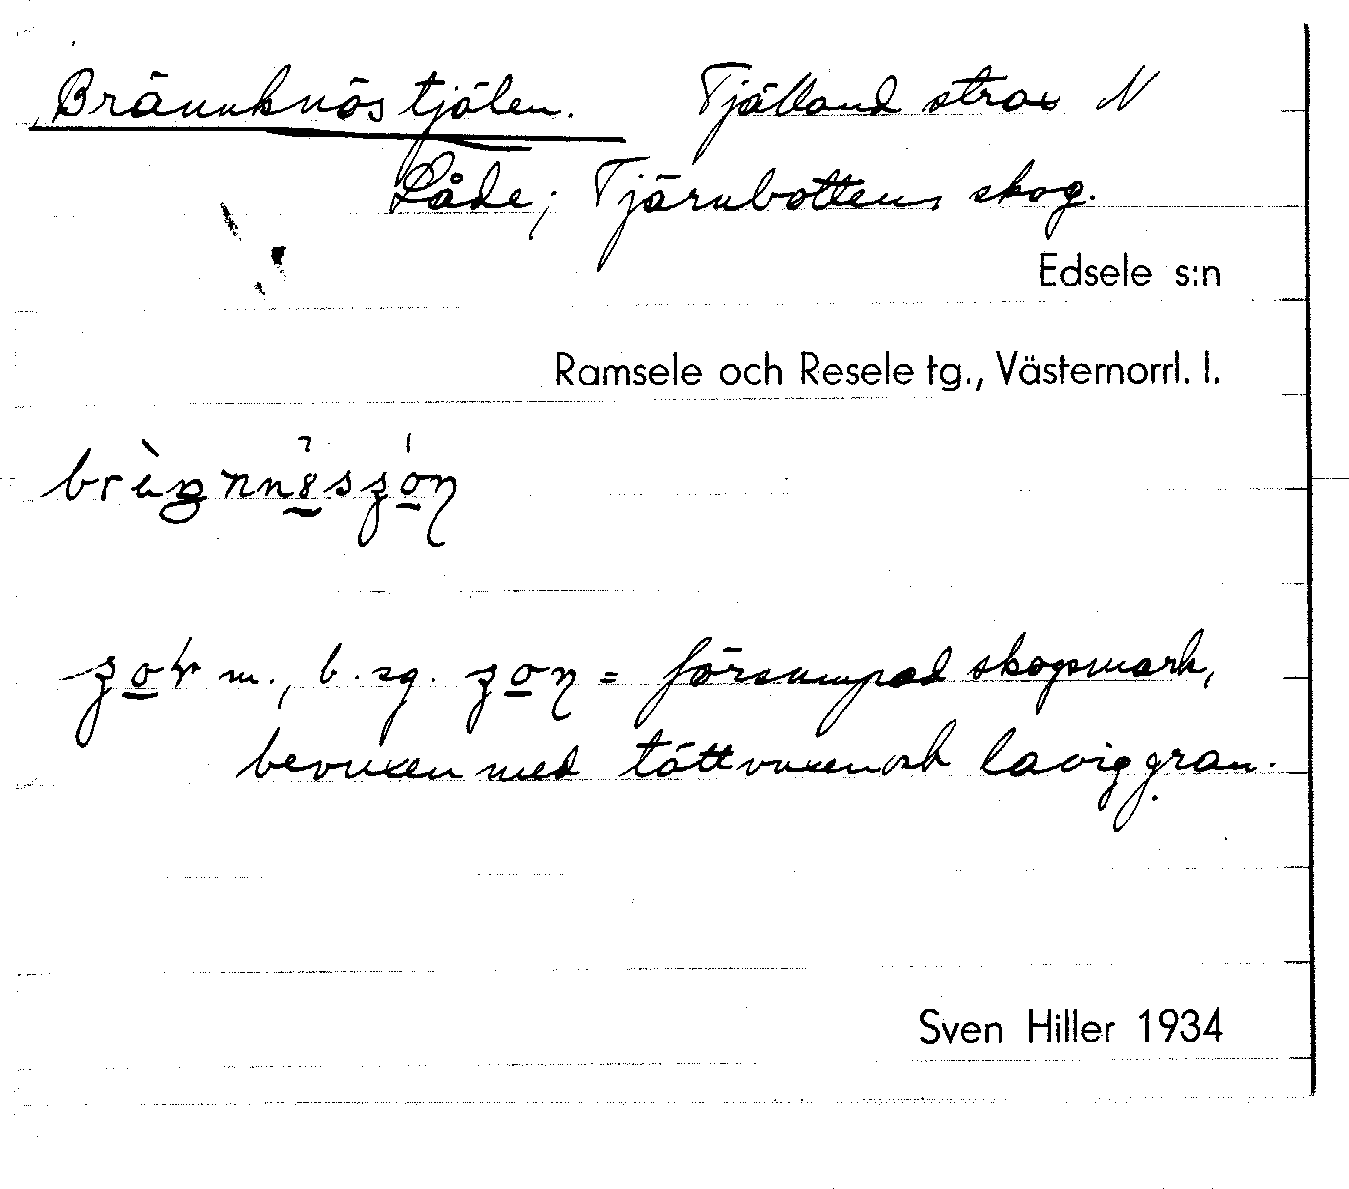 Brännknöstjälen. Tjälland strax N
Låde; Tjärnbottens skog.
Edsele s:n
Ramsele och Resele tg., Västernorrl. l.
m., b. sg. = försumpad skogsmark,
bevuxen med tättvuxen och lavig gran.
Sven Hiller 1934